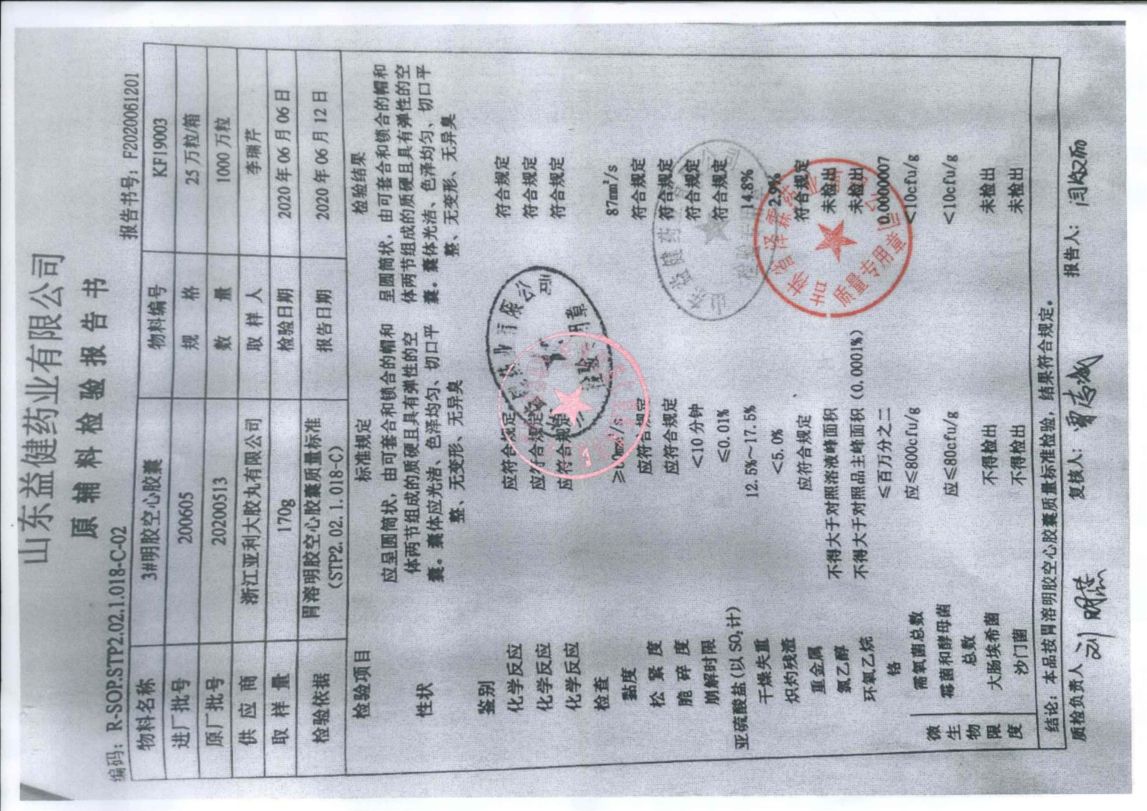 山东益健药业有限公司
原辅料检验报告书
编码：R-SOP.STP2.02.1.018-C-02 报告书号：F2020061201
物料名称 3#明胶空心胶囊 物料编号 KF19003
进厂批号 200605 规格 25万粒/箱
原厂批号 20200513 数量 1000万粒
供应商 浙江亚利大胶丸有限公司 取样人 李瑞芹
取样量 170g 检验日期 2020年06月06日
检验依据 胃溶明胶空心胶囊质量标准 报告日期 2020年06月12日
（STP2.02.1.018-C）
检验项目 标准规定 检验结果
性状 应呈圆筒状，由可套合和锁合的帽和 呈圆筒状，由可套合和锁合的帽和
体两节组成的质硬且具有弹性的空 体两节组成的质硬且具有弹性的空
囊。囊体应光洁、色泽均匀、切口平 囊。囊体光洁、色泽均匀、切口平
整、无变形、无异臭 整、无变形、无异臭
鉴别
化学反应 应符合规定 符合规定
化学反应 应符合规定 符合规定
化学反应 应符合规定 符合规定
检查
黏度 87mm²/s
松紧度 应符合规定 符合规定
脆碎度 应符合规定 符合规定
崩解时限 <10分钟 符合规定
亚硫酸盐(以SO₂计) ≤0.01% 符合规定
干燥失重 12.5%~17.5% 14.8%
炽灼残渣 <5.0% 2.9%
重金属 应符合规定 符合规定
氯乙醇 不得大于对照溶液峰面积 未检出
环氧乙烷 不得大于对照品主峰面积（0.0001%） 未检出
铬 ≤百万分之二 0.0000007
微生物限度
需氧菌总数 应≤800cfu/g <10cfu/g
霉菌和酵母菌总数 应≤80cfu/g <10cfu/g
大肠埃希菌 不得检出 未检出
沙门菌 不得检出 未检出
结论：本品按胃溶明胶空心胶囊质量标准检验，结果符合规定。
质检负责人 复核人： 报告人：
质量专用章